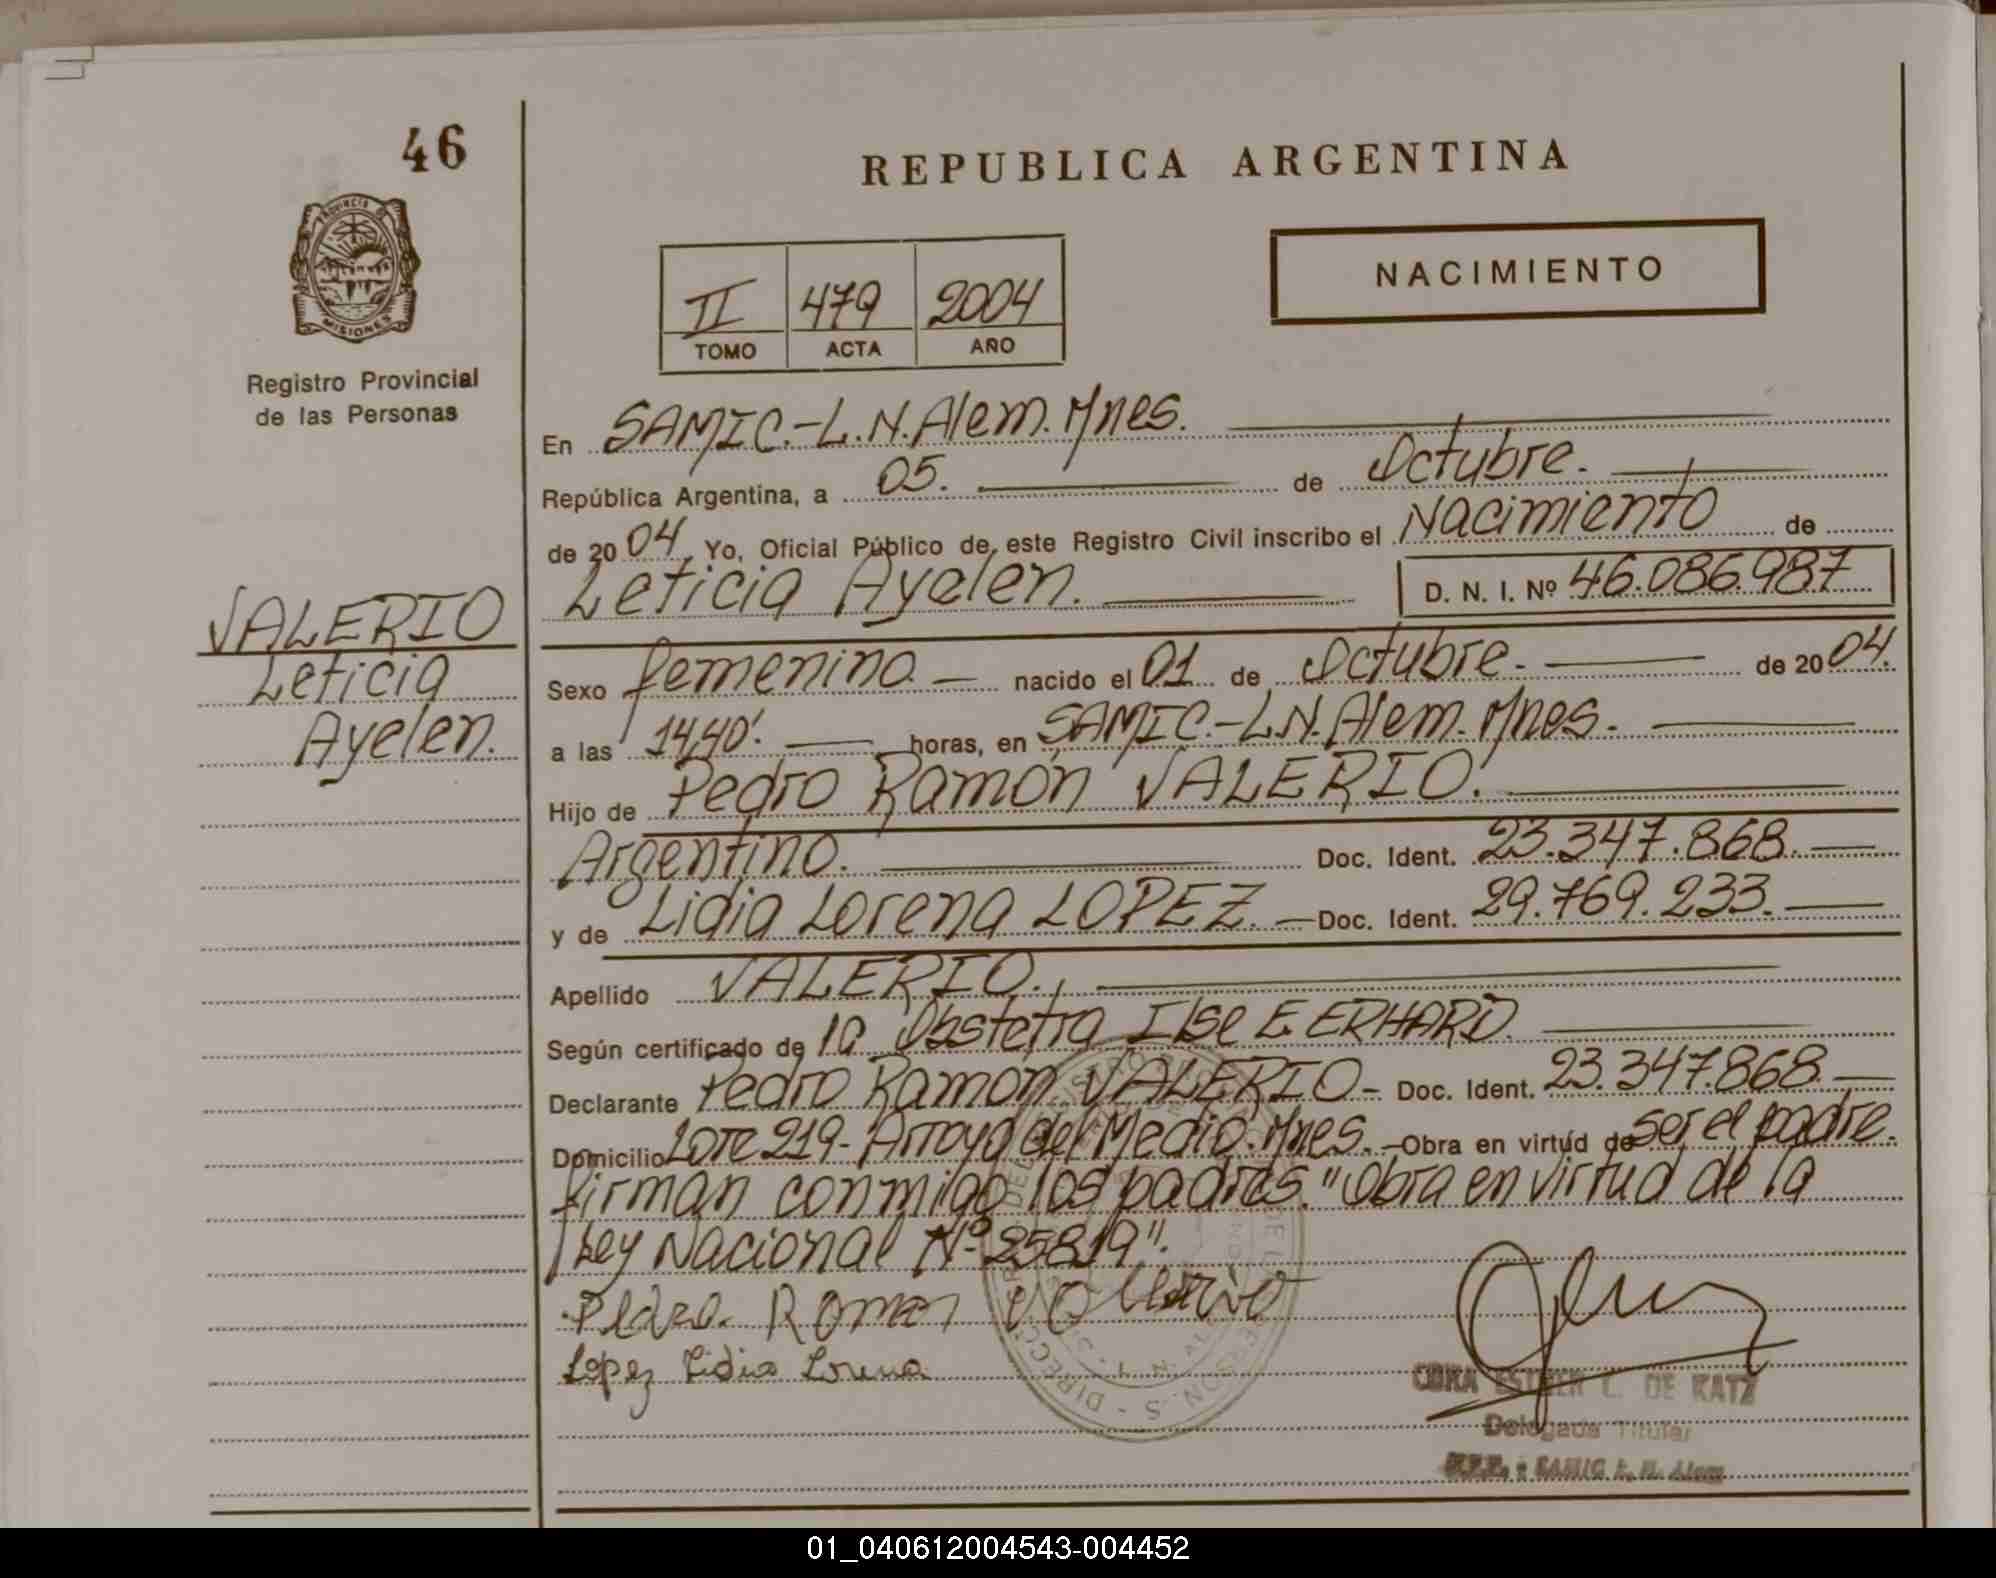 46
REPUBLICA ARGENTINA
PROVINCIA DE
MISIONES
Registro Provincial
de las Personas
NACIMIENTO
II 479 2004
TOMO ACTA AÑO
En SAMIC.-L.N.Alem.Mnes.
República Argentina, a 05. de Octubre.
de 2004 Yo, Oficial Público de este Registro Civil inscribo el Nacimiento de
Leticia Ayelen. D. N. I. Nº 46.086.987
VALERIO
Leticia
Ayelen.
Sexo femenino nacido el 01 de Octubre. de 2004.
a las 14,40'. horas, en SAMIC.-L.N.Alem.Mnes.
Hijo de Pedro Ramón VALERIO.
Argentino. Doc. Ident. 23.347.868.
y de Lidia Lorena LOPEZ. Doc. Ident. 29.769.233.
Apellido VALERIO.
Según certificado de la Obstetra Ilse E. ERHARD.
Declarante Pedro Ramon VALERIO- Doc. Ident. 23.347.868.
Domicilio Lote 219- Arroyo del Medio.Mnes. Obra en virtud de ser el padre.
firman conmigo los padres. "Obra en virtud de la
Ley Nacional Nº 25819".
Pedro Ramon Valerio
Lopez Lidia Lorena
CORA ESTHER L. DE KATZ
Delegada Titular
SAMIC L. N. Alem
01_040612004543-004452